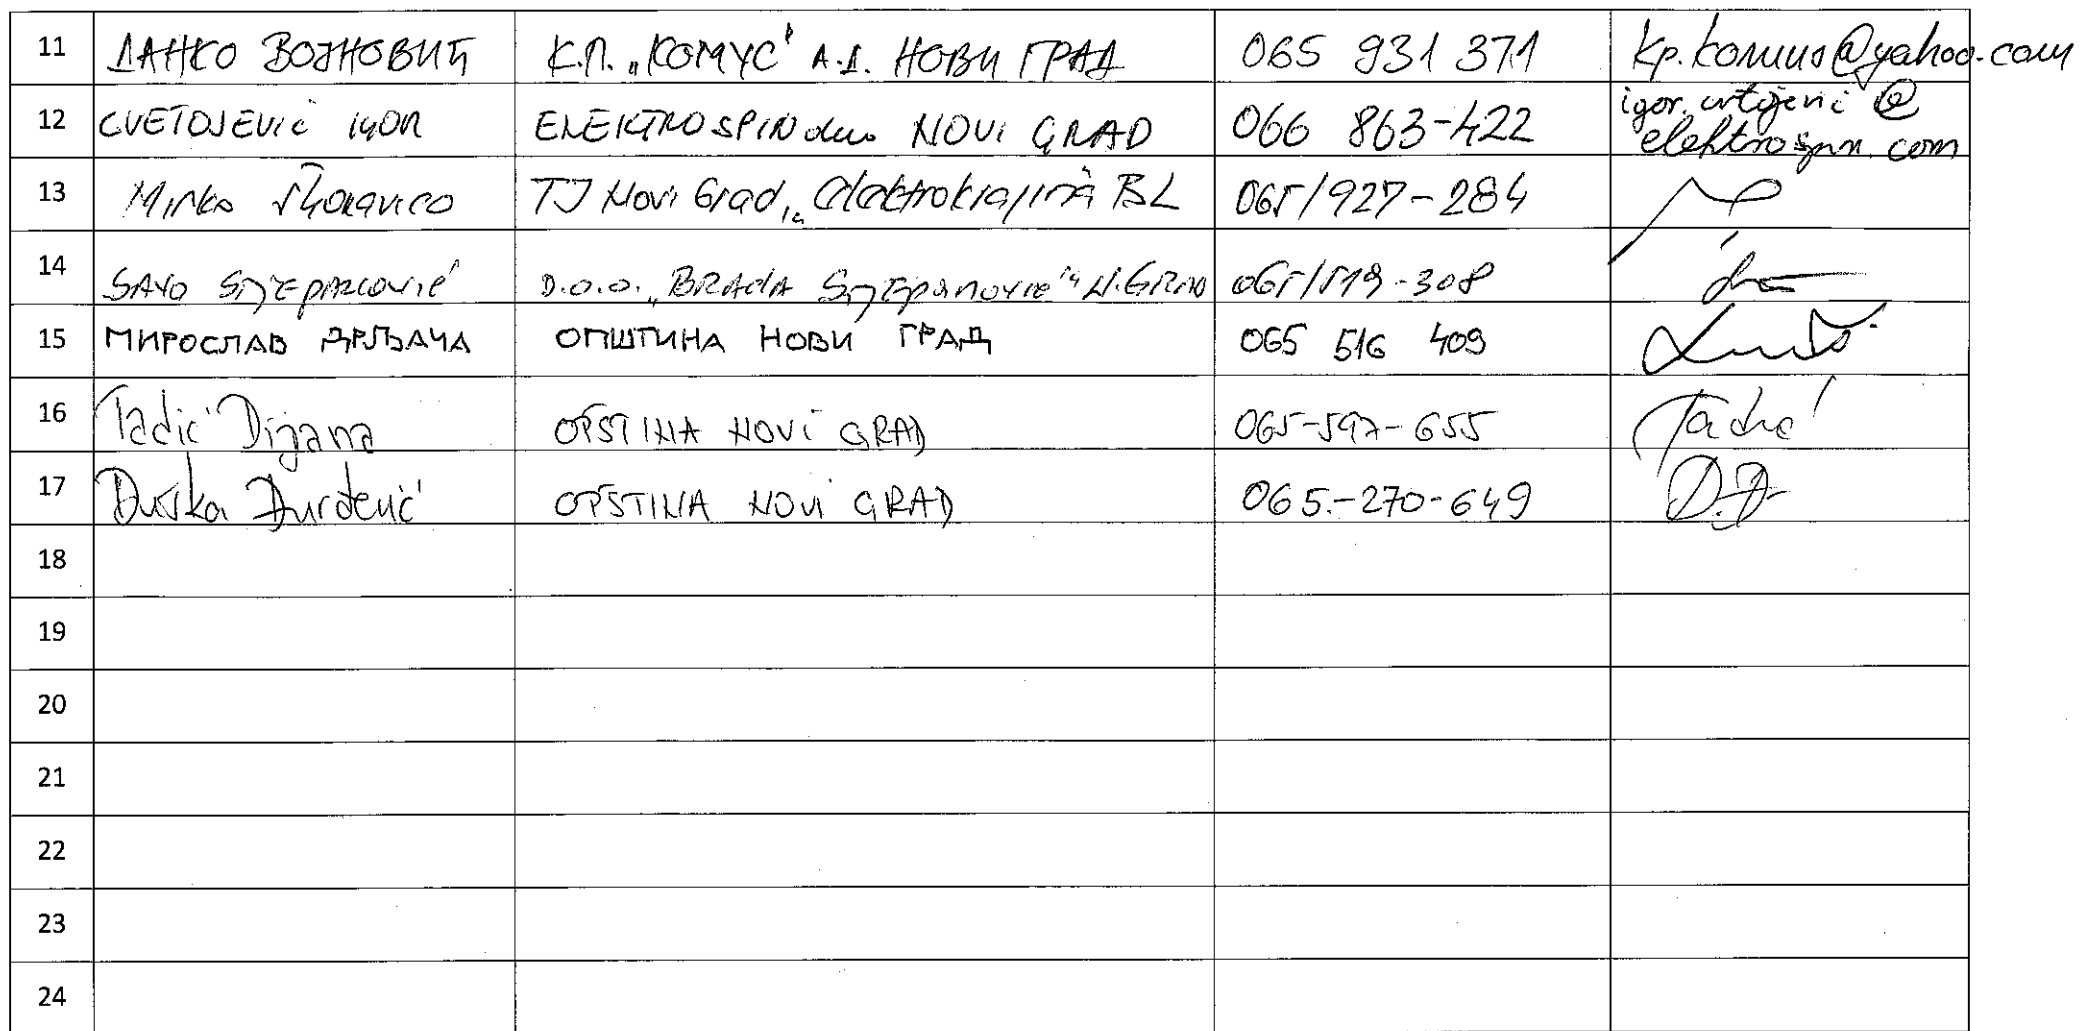 11 ДАНКО ВОЈНОВИЋ К.П. „КОМУС" А.Д. НОВИ ГРАД 065 931 371 kp.komus@yahoo.com
12 CVETOJEVIĆ IGOR ELEKTROSPIN doo NOVI GRAD 066 863-422 igor.cvetojevic@
elektrospin.com
13 Mirko TJ Novi Grad, „Elektrokrajina BL 065/927-284
14 SAVO STJEPANOVIĆ D.O.O. „BRAĆA STJEPANOVIĆ" N.GRAD 065/519-308
15 МИРОСЛАВ ДРЉАЧА ОПШТИНА НОВИ ГРАД 065 516 409
16 Tadić Dijana OPŠTINA NOVI GRAD 065-597-655 Tadić
17 Duška Đurđević OPŠTINA NOVI GRAD 065-270-649 D.Đ
18
19
20
21
22
23
24